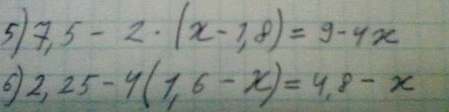 5) 7,5 - 2 · (x - 1,8) = 9 - 4x
6) 2,25 - 4(1,6 - x) = 4,8 - x